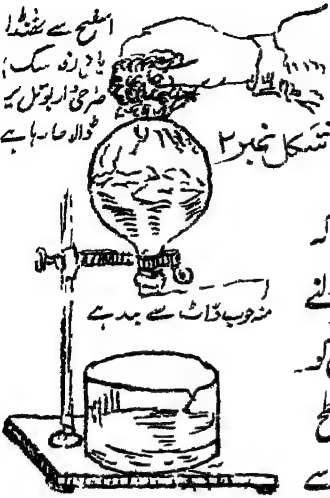 اسفنج سے ٹھنڈا
پانی
صراحی دار بوتل پر
ڈالا جا رہا ہے
شکل نمبر ۲
منہ خوب ڈاٹ سے بند ہے
کہ
کو
سے